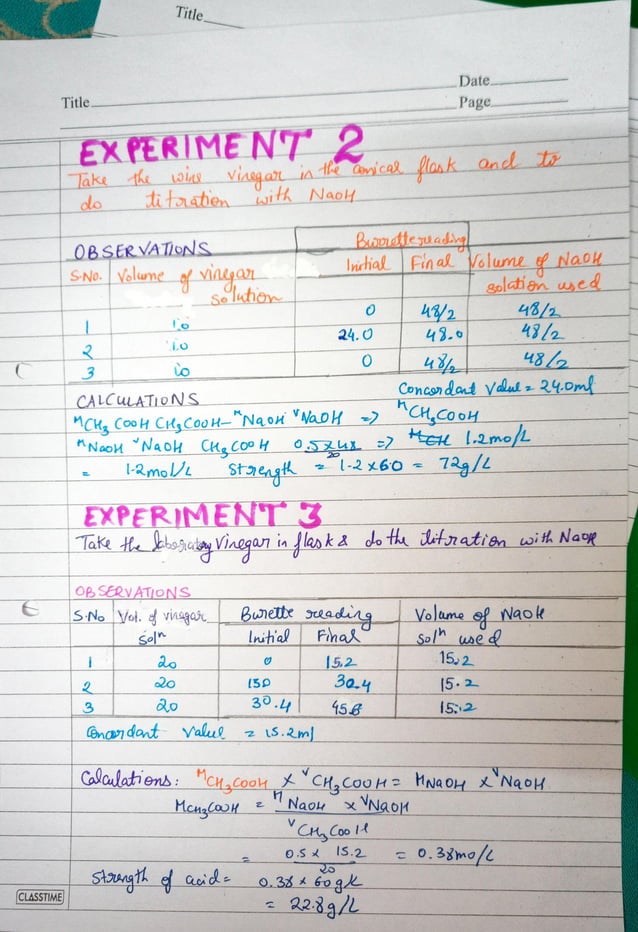 Title
Date
Title
Page
EXPERIMENT 2
Take the wine vinegar in the conical flask and to
do titration with NaOH
OBSERVATIONS
Burette reading
S.No. Volume of vinegar solution Initial Final Volume of NaOH solution used
1 10 0 48/2 48/2
2 10 24.0 48.0 48/2
3 10 0 48/2 48/2
Concordant Value = 24.0ml
CALCULATIONS
MCH3COOH CH3COOH- MNaOH VNaOH => MCH3COOH
MNaOH VNaOH CH3COOH 0.5x48/20 => 1.2mo/L
= 1.2mol/L Strength = 1.2x60 = 72g/L
EXPERIMENT 3
Take the laboratory Vinegar in flask & do the titration with NaOH
OBSERVATIONS
S.No Vol. of vinegar Burette reading Volume of NaOH
Soln Initial Final Soln used
1 20 0 15.2 15.2
2 20 15.0 30.4 15.2
3 20 30.4 45.6 15.2
Concordant Value = 15.2ml
Calculations: MCH3COOH x VCH3COOH = MNaOH x VNaOH
MCH3COOH = MNaOH x VNaOH
VCH3COOH
= 0.5 x 15.2 = 0.38mo/L
20
Strength of acid = 0.38 x 60 g/L
= 22.8g/L
CLASSTIME